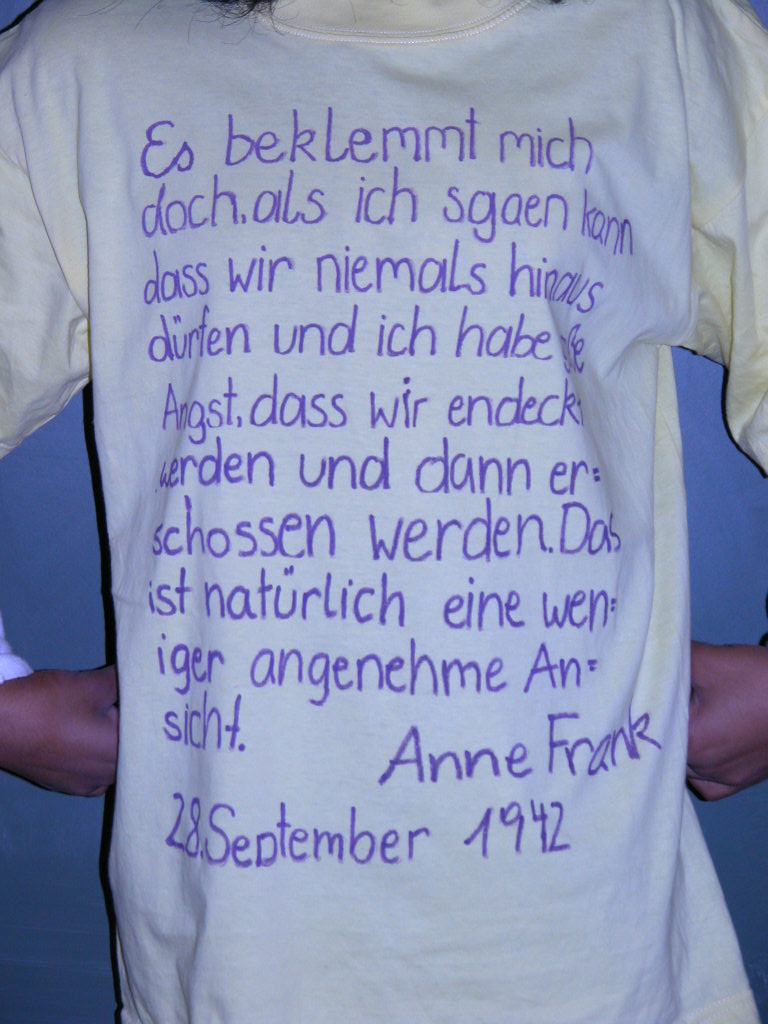 Es beklemmt mich
doch.als ich sgaen kann
dass wir niemals hinaus
dürfen und ich habe
Angst, dass wir endeckt
werden und dann er=
schossen werden. Das
ist natürlich eine wen=
iger angenehme An=
sicht.
Anne Frank
28.September 1942